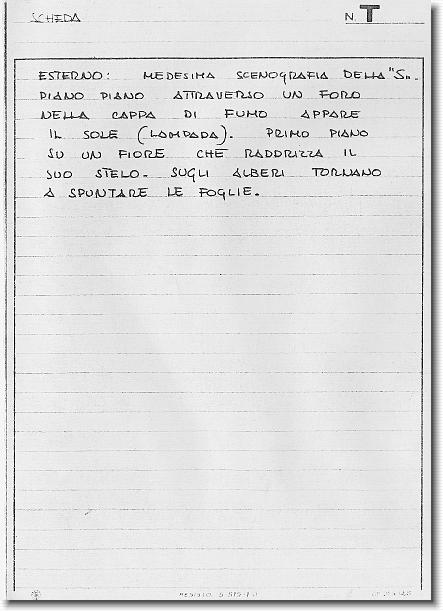 SCHEDA
N. T
ESTERNO: MEDESIMA SCENOGRAFIA DELLA "S"
PIANO PIANO ATTRAVERSO UN FORO
NELLA CAPPA DI FUMO APPARE
IL SOLE (LAMPADA). PRIMO PIANO
SU UN FIORE CHE RADDRIZZA IL
SUO STELO. SUGLI ALBERI TORNANO
A SPUNTARE LE FOGLIE.